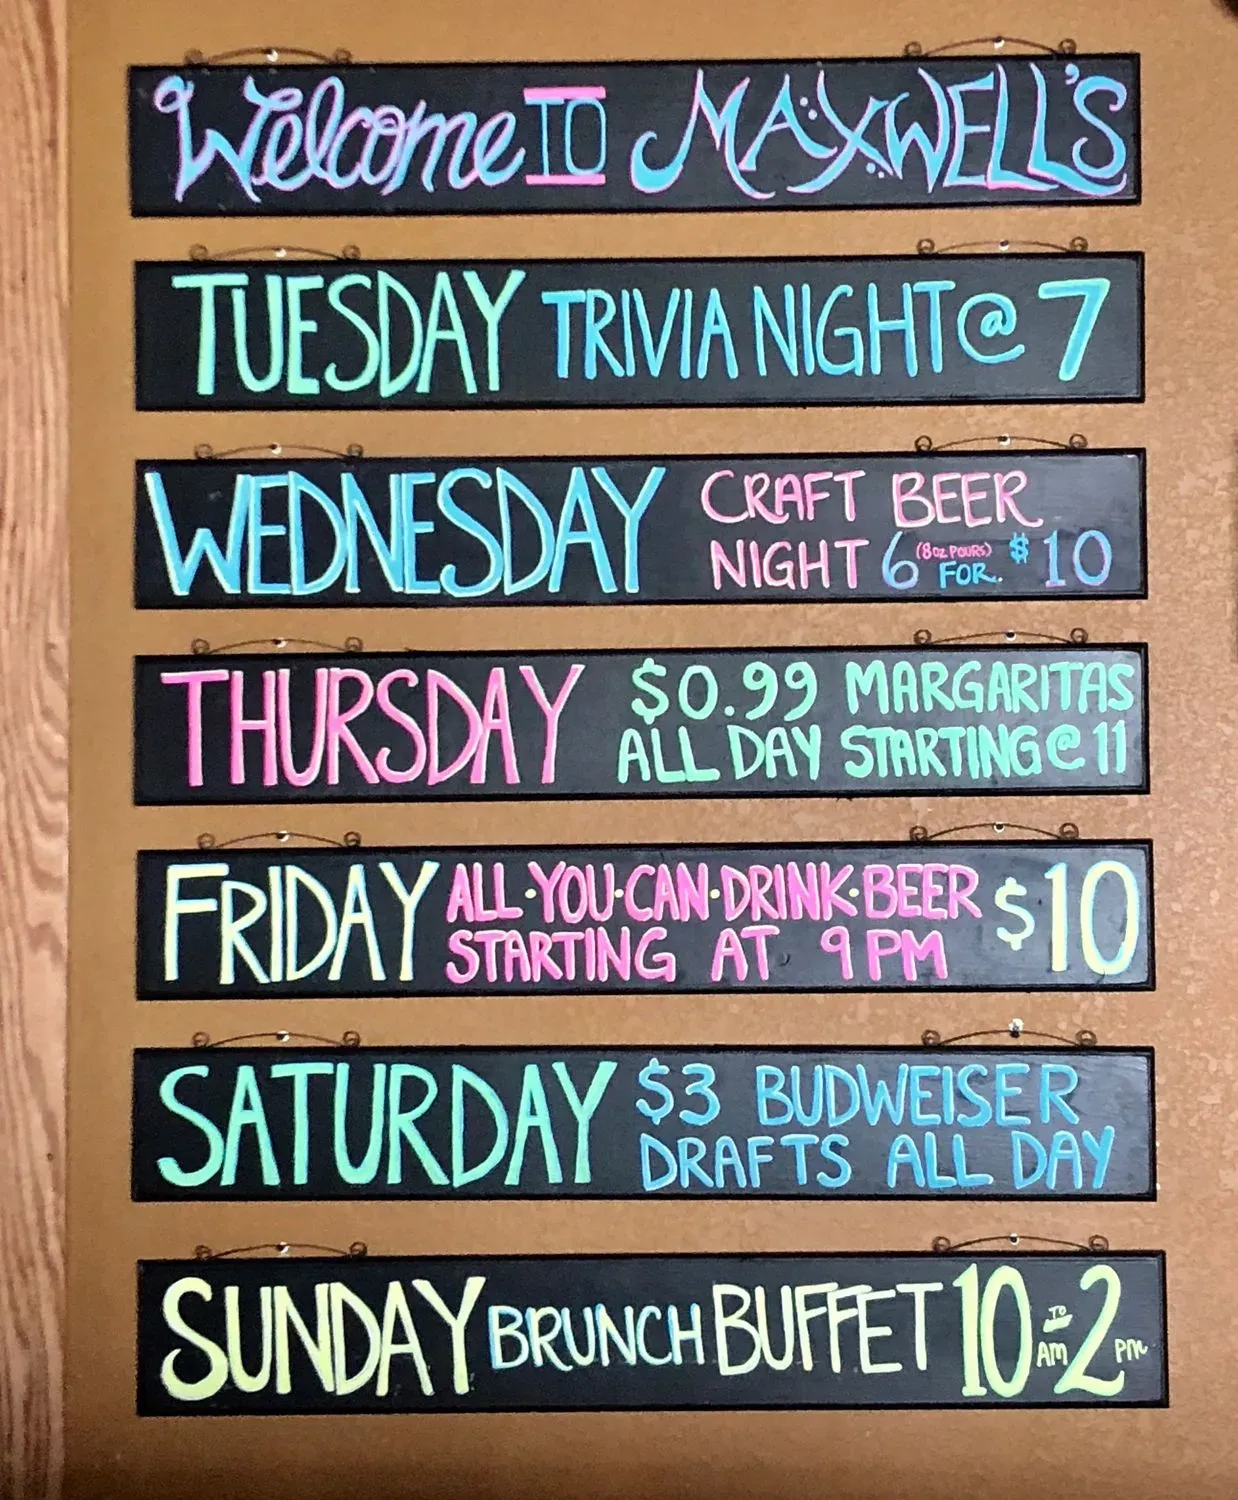 Welcome TO MAXWELL'S
TUESDAY TRIVIA NIGHT @ 7
WEDNESDAY CRAFT BEER
NIGHT 6 (8oz POURS) FOR. $10
THURSDAY $0.99 MARGARITAS
ALL DAY STARTING @ 11
FRIDAY ALL·YOU·CAN·DRINK·BEER $10
STARTING AT 9PM
SATURDAY $3 BUDWEISER
DRAFTS ALL DAY
SUNDAY BRUNCH BUFFET 10 AM TO 2 PM